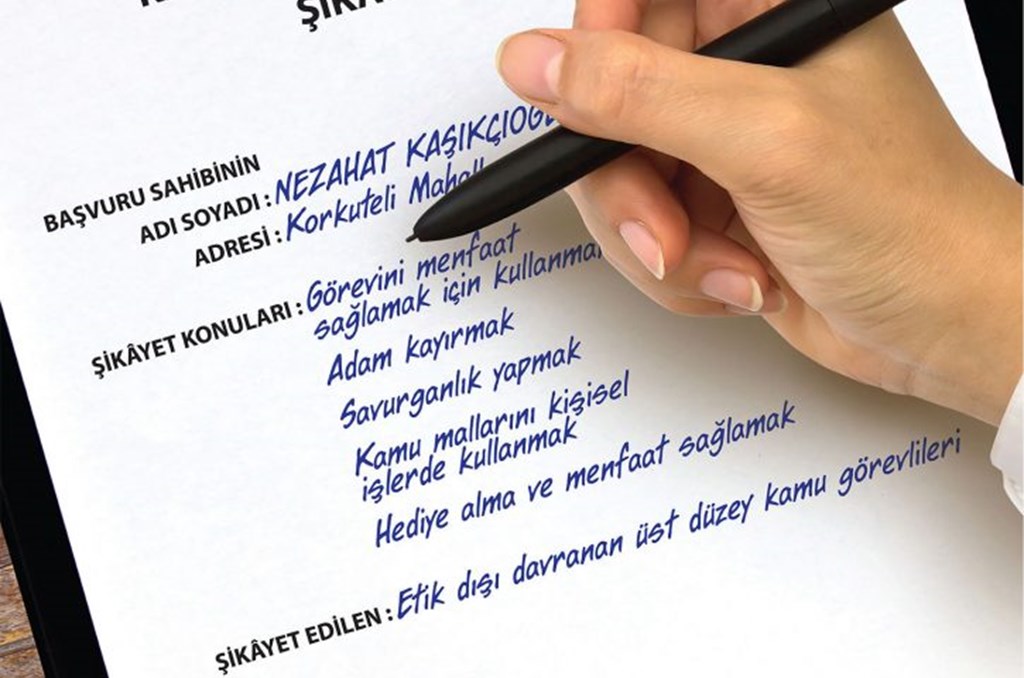 BAŞVURU SAHİBİNİN
ADI SOYADI : NEZAHAT
ADRESİ : Korkuteli
ŞİKÂYET KONULARI : Görevini menfaat
sağlamak için
Adam kayırmak
Savurganlık yapmak
Kamu mallarını kişisel
işlerde kullanmak
Hediye alma ve menfaat sağlamak
ŞİKÂYET EDİLEN : Etik dışı davranan üst düzey kamu görevlileri